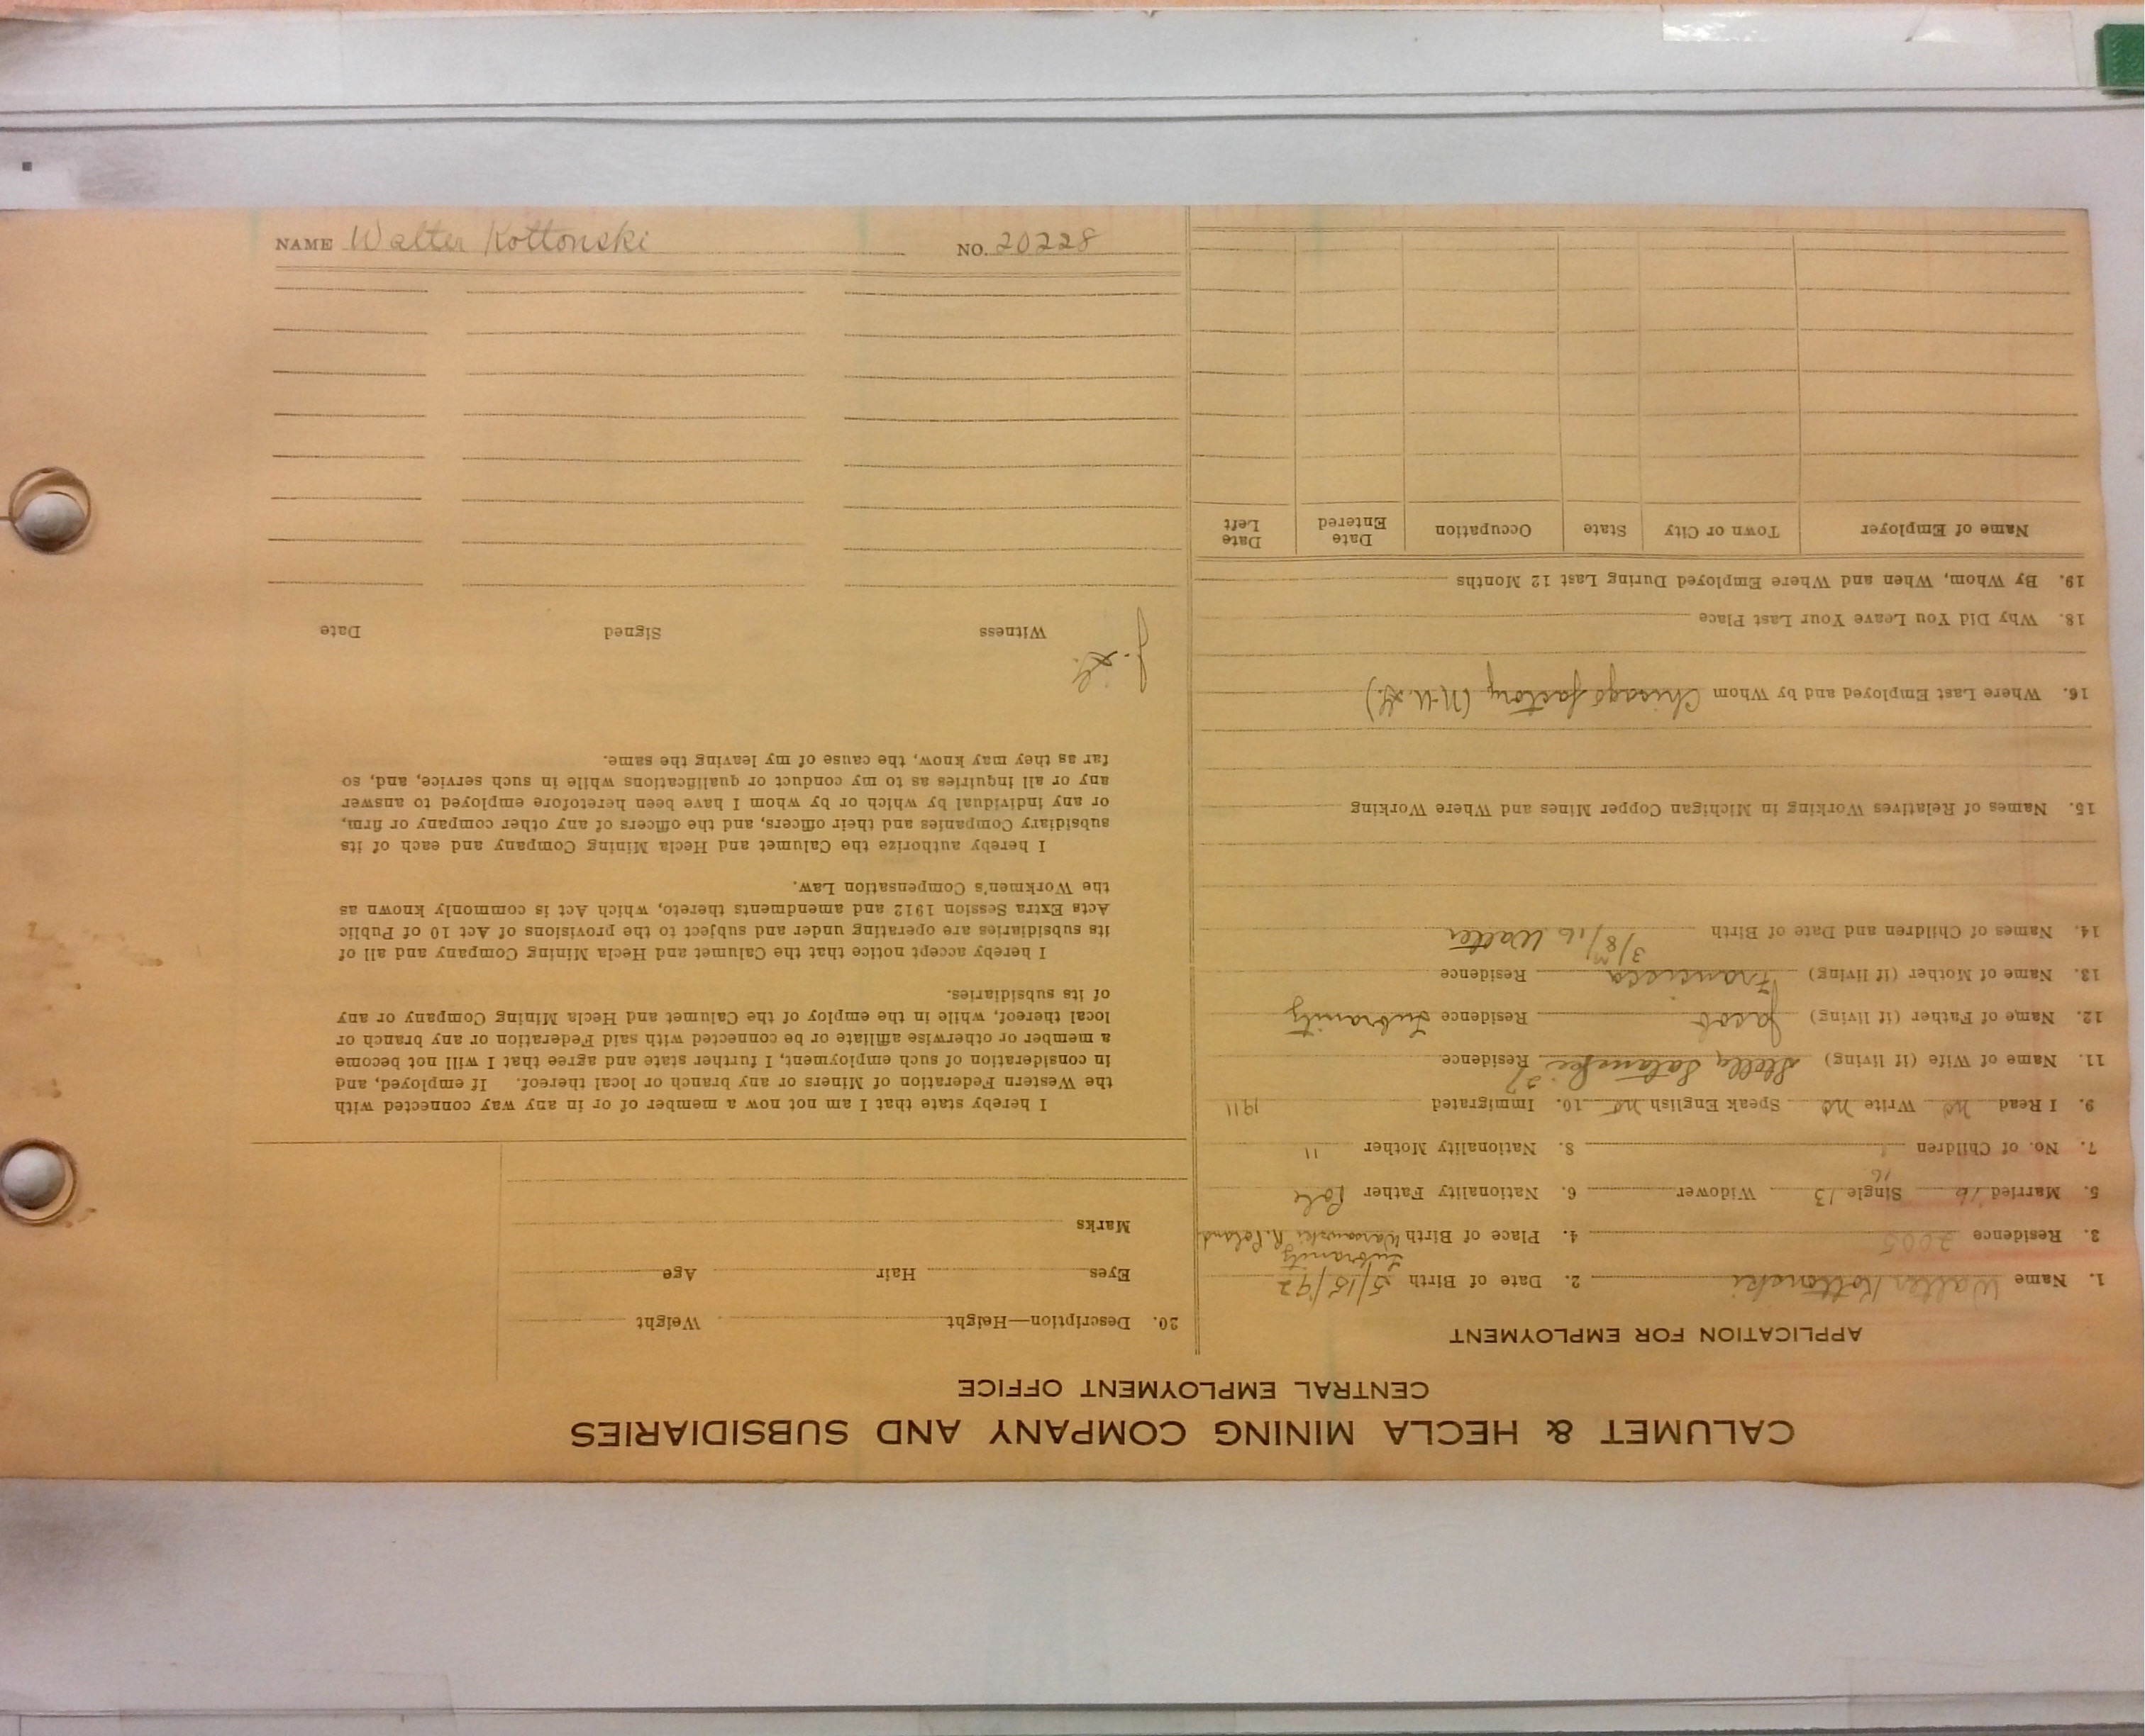 NAME Walter Kottonski NO. 20228
CALUMET & HECLA MINING COMPANY AND SUBSIDIARIES
CENTRAL EMPLOYMENT OFFICE
APPLICATION FOR EMPLOYMENT
1. Name Walter Kottonski 2. Date of Birth 5/15/92
3. Residence 2005 4. Place of Birth Warsawski R. Poland
5. Married 16 Single 13 Widower 6. Nationality Father Pole
16
7. No. of Children 1 8. Nationality Mother 11
9. I Read no Write no Speak English no 10. Immigrated 1911
11. Name of Wife (if living) Stella Residence
12. Name of Father (if living) Jacob Residence
13. Name of Mother (if living) Francisca Residence
14. Names of Children and Date of Birth 3/8/16 Walter
15. Names of Relatives Working in Michigan Copper Mines and Where Working
16. Where Last Employed and by Whom Chicago factory
18. Why Did You Leave Your Last Place
19. By Whom, When and Where Employed During Last 12 Months
Name of Employer Town or City State Occupation Date Entered Date Left
20. Description—Height Weight
Eyes Hair Age
Marks
I hereby state that I am not now a member of or in any way connected with
the Western Federation of Miners or any branch or local thereof. If employed, and
in consideration of such employment, I further state and agree that I will not become
a member or otherwise affiliate or be connected with said Federation or any branch or
local thereof, while in the employ of the Calumet and Hecla Mining Company or any
of its subsidiaries.
I hereby accept notice that the Calumet and Hecla Mining Company and all of
its subsidiaries are operating under and subject to the provisions of Act 10 of Public
Acts Extra Session 1912 and amendments thereto, which Act is commonly known as
the Workmen's Compensation Law.
I hereby authorize the Calumet and Hecla Mining Company and each of its
subsidiary Companies and their officers, and the officers of any other company or firm,
or any individual by which or by whom I have been heretofore employed to answer
any or all inquiries as to my conduct or qualifications while in such service, and, so
far as they may know, the cause of my leaving the same.
Witness Signed Date